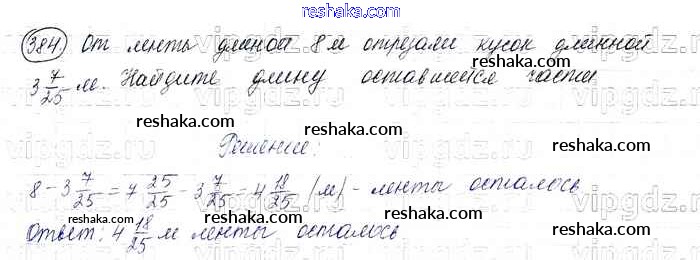 reshaka.com
384. От ленты длиной 8 м отрезали кусок длинной
3 7/25 м. Найдите длину оставшейся части
reshaka.com
reshaka.com
reshaka.com
Решение:
reshaka.com
reshaka.com
8 - 3 7/25 = 7 25/25 - 3 7/25 = 4 18/25 (м) - ленты осталось
reshaka.com
reshaka.com
Ответ: 4 18/25 м ленты осталось
reshaka.com